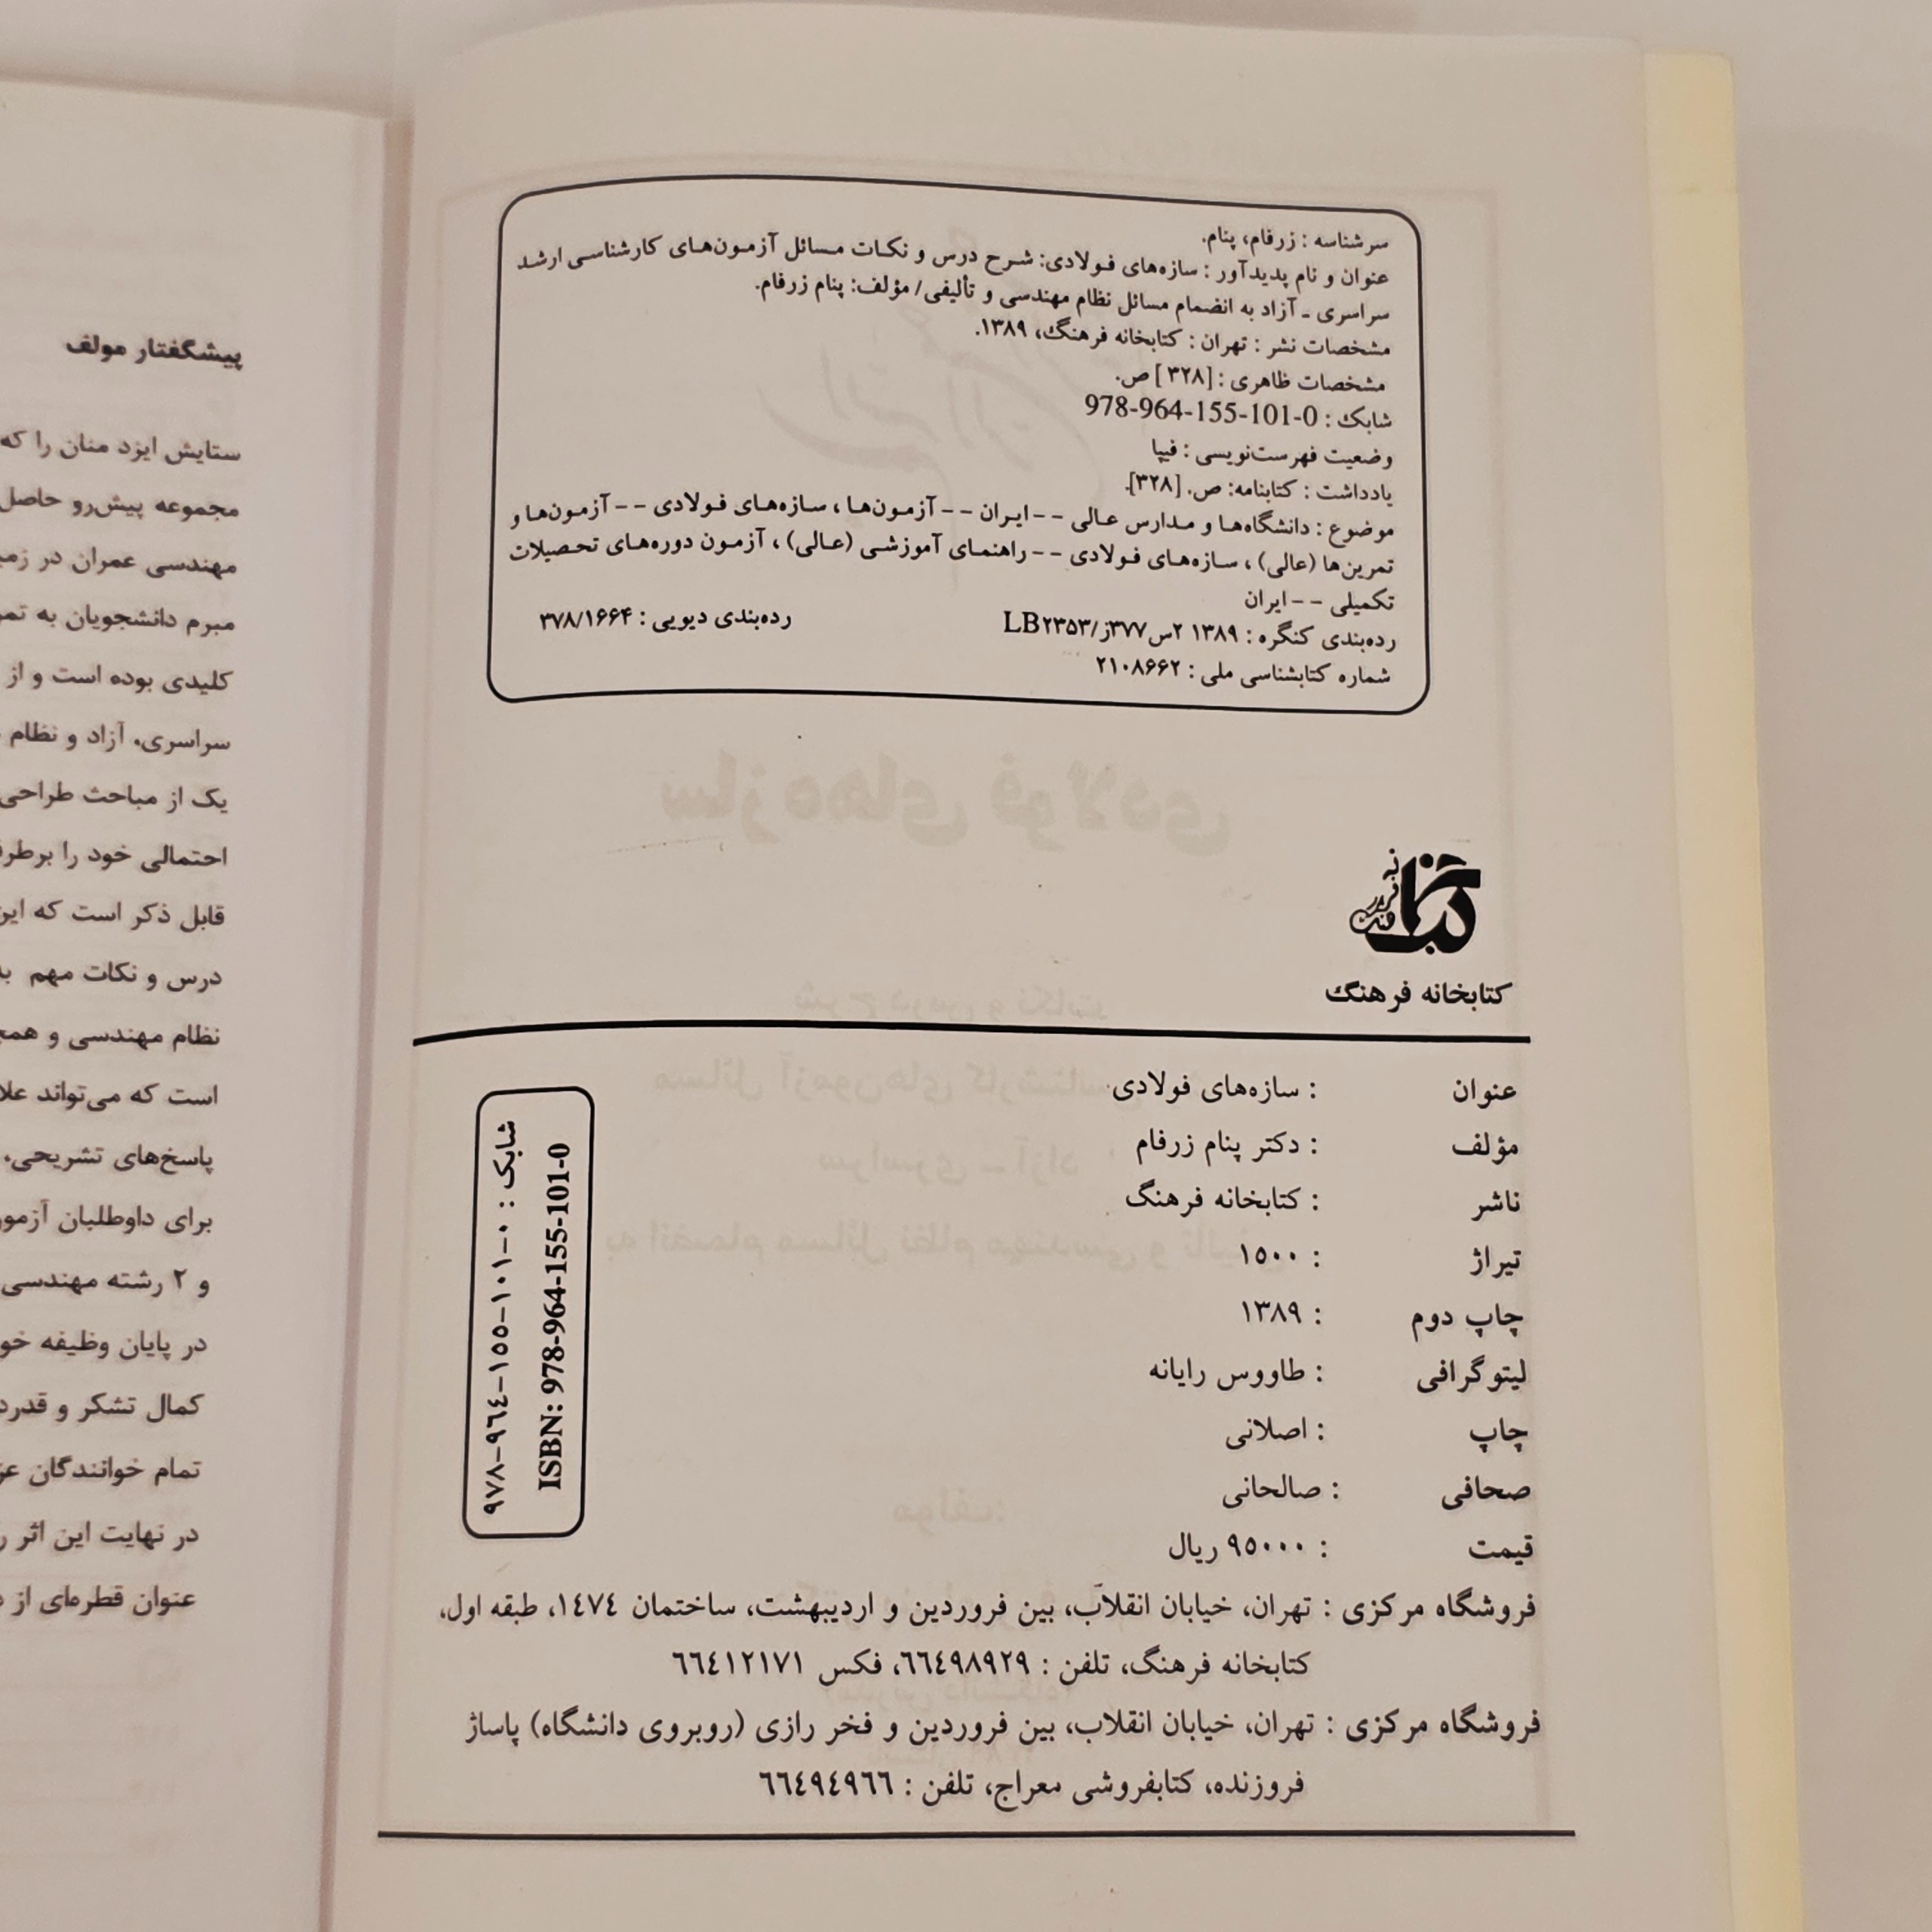 سرشناسه : زرفام، پنام.
عنوان و نام پدیدآور : سازه‌های فولادی: شرح درس و نکات مسائل آزمون‌های کارشناسی ارشد
سراسری ـ آزاد به انضمام مسائل نظام مهندسی و تألیفی/ مؤلف: پنام زرفام.
مشخصات نشر : تهران : کتابخانه فرهنگ، ۱۳۸۹.
مشخصات ظاهری : [۳۲۸] ص.
شابک : 978-964-155-101-0
وضعیت فهرست‌نویسی : فیپا
یادداشت : کتابنامه: ص. [۳۲۸].
موضوع : دانشگاه‌ها و مدارس عالی -- ایران -- آزمون‌ها ، سازه‌های فولادی -- آزمون‌ها و
تمرین‌ها (عالی) ، سازه‌های فولادی -- راهنمای آموزشی (عالی) ، آزمون دوره‌های تحصیلات
تکمیلی -- ایران
رده‌بندی کنگره : ۱۳۸۹ ۲س۳۷۷ز/LB۲۳۵۳ رده‌بندی دیویی : ۳۷۸/۱۶۶۴
شماره کتابشناسی ملی : ۲۱۰۸۶۶۲
کتابخانه فرهنگ
عنوان : سازه‌های فولادی
مؤلف : دکتر پنام زرفام
ناشر : کتابخانه فرهنگ
تیراژ : ۱۵۰۰
چاپ دوم : ۱۳۸۹
لیتوگرافی : طاووس رایانه
چاپ : اصلانی
صحافی : صالحانی
قیمت : ۹۵۰۰۰ ریال
شابک : ۰-۱۰۱-۱۵۵-۹٦٤-۹۷۸
ISBN: 978-964-155-101-0
فروشگاه مرکزی : تهران، خیابان انقلاب، بین فروردین و اردیبهشت، ساختمان ١٤٧٤، طبقه اول،
کتابخانه فرهنگ، تلفن : ٦٦٤٩٨٩٢٩، فکس ٦٦٤١٢١٧١
فروشگاه مرکزی : تهران، خیابان انقلاب، بین فروردین و فخر رازی (روبروی دانشگاه) پاساژ
فروزنده، کتابفروشی معراج، تلفن : ٦٦٤٩٤٩٦٦
پیشگفتار مولف
ستایش ایزد منان را که
مجموعه پیش‌رو حاصل
مهندسی عمران در
مبرم دانشجویان به
کلیدی بوده است و از
سراسری، آزاد و نظام
یک از مباحث طراحی
احتمالی خود را
قابل ذکر است که
درس و نکات مهم
نظام مهندسی و
است که می‌تواند
پاسخ‌های تشریحی،
برای داوطلبان
و ۲ رشته مهندسی
در پایان وظیفه
کمال تشکر و
تمام خوانندگان
در نهایت این اثر
عنوان قطره‌ای از